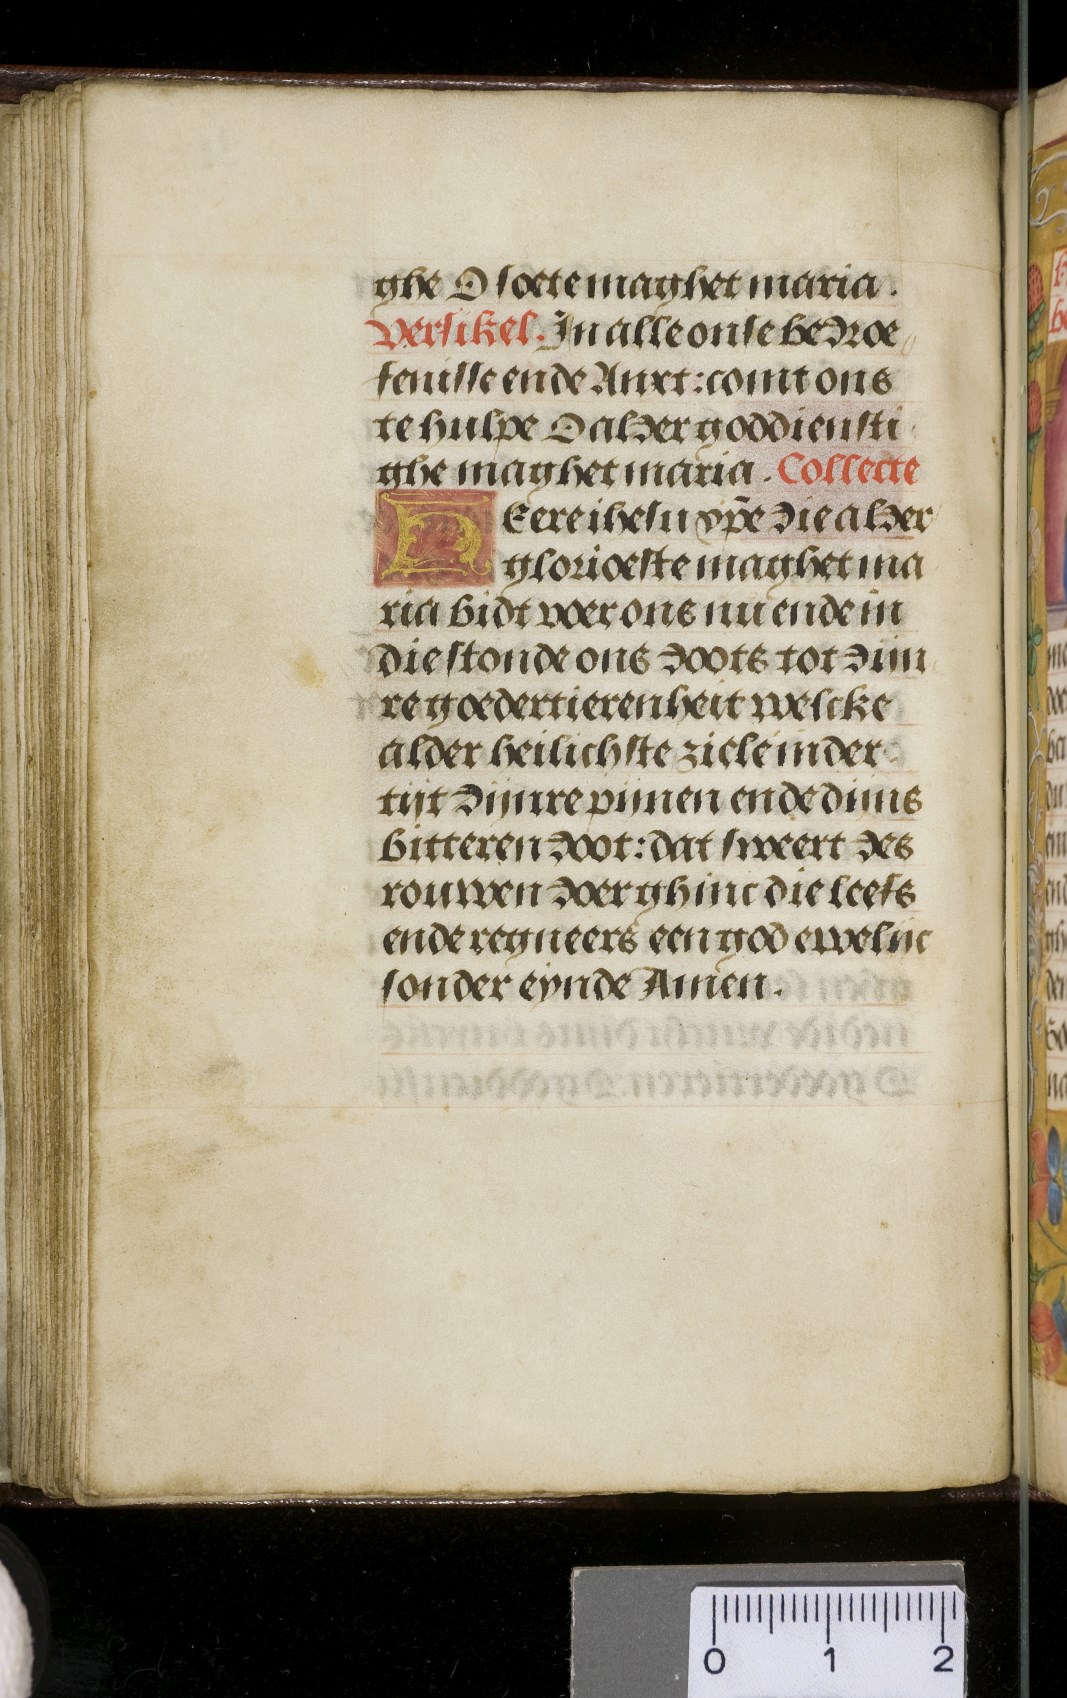 ghe O soete maghet maria.
Versikel. In alle onse bedroe
fenisse ende Anxt: comt ons
te hulpe O alder goddiensti
ghe maghet maria. Collecte
HEere ihesu xpe die alder
glorioeste maghet ma
ria bidt voer ons nu ende in
die stonde ons doots tot dijn
re goedertierenheit welcke
alder heilichste ziele in der
tijt dijnre pijnen ende dijns
bitteren doot: dat sweert des
rouwen doer ghinc die leefs
ende regneers een god ewelijc
sonder eynde Amen.
0 1 2